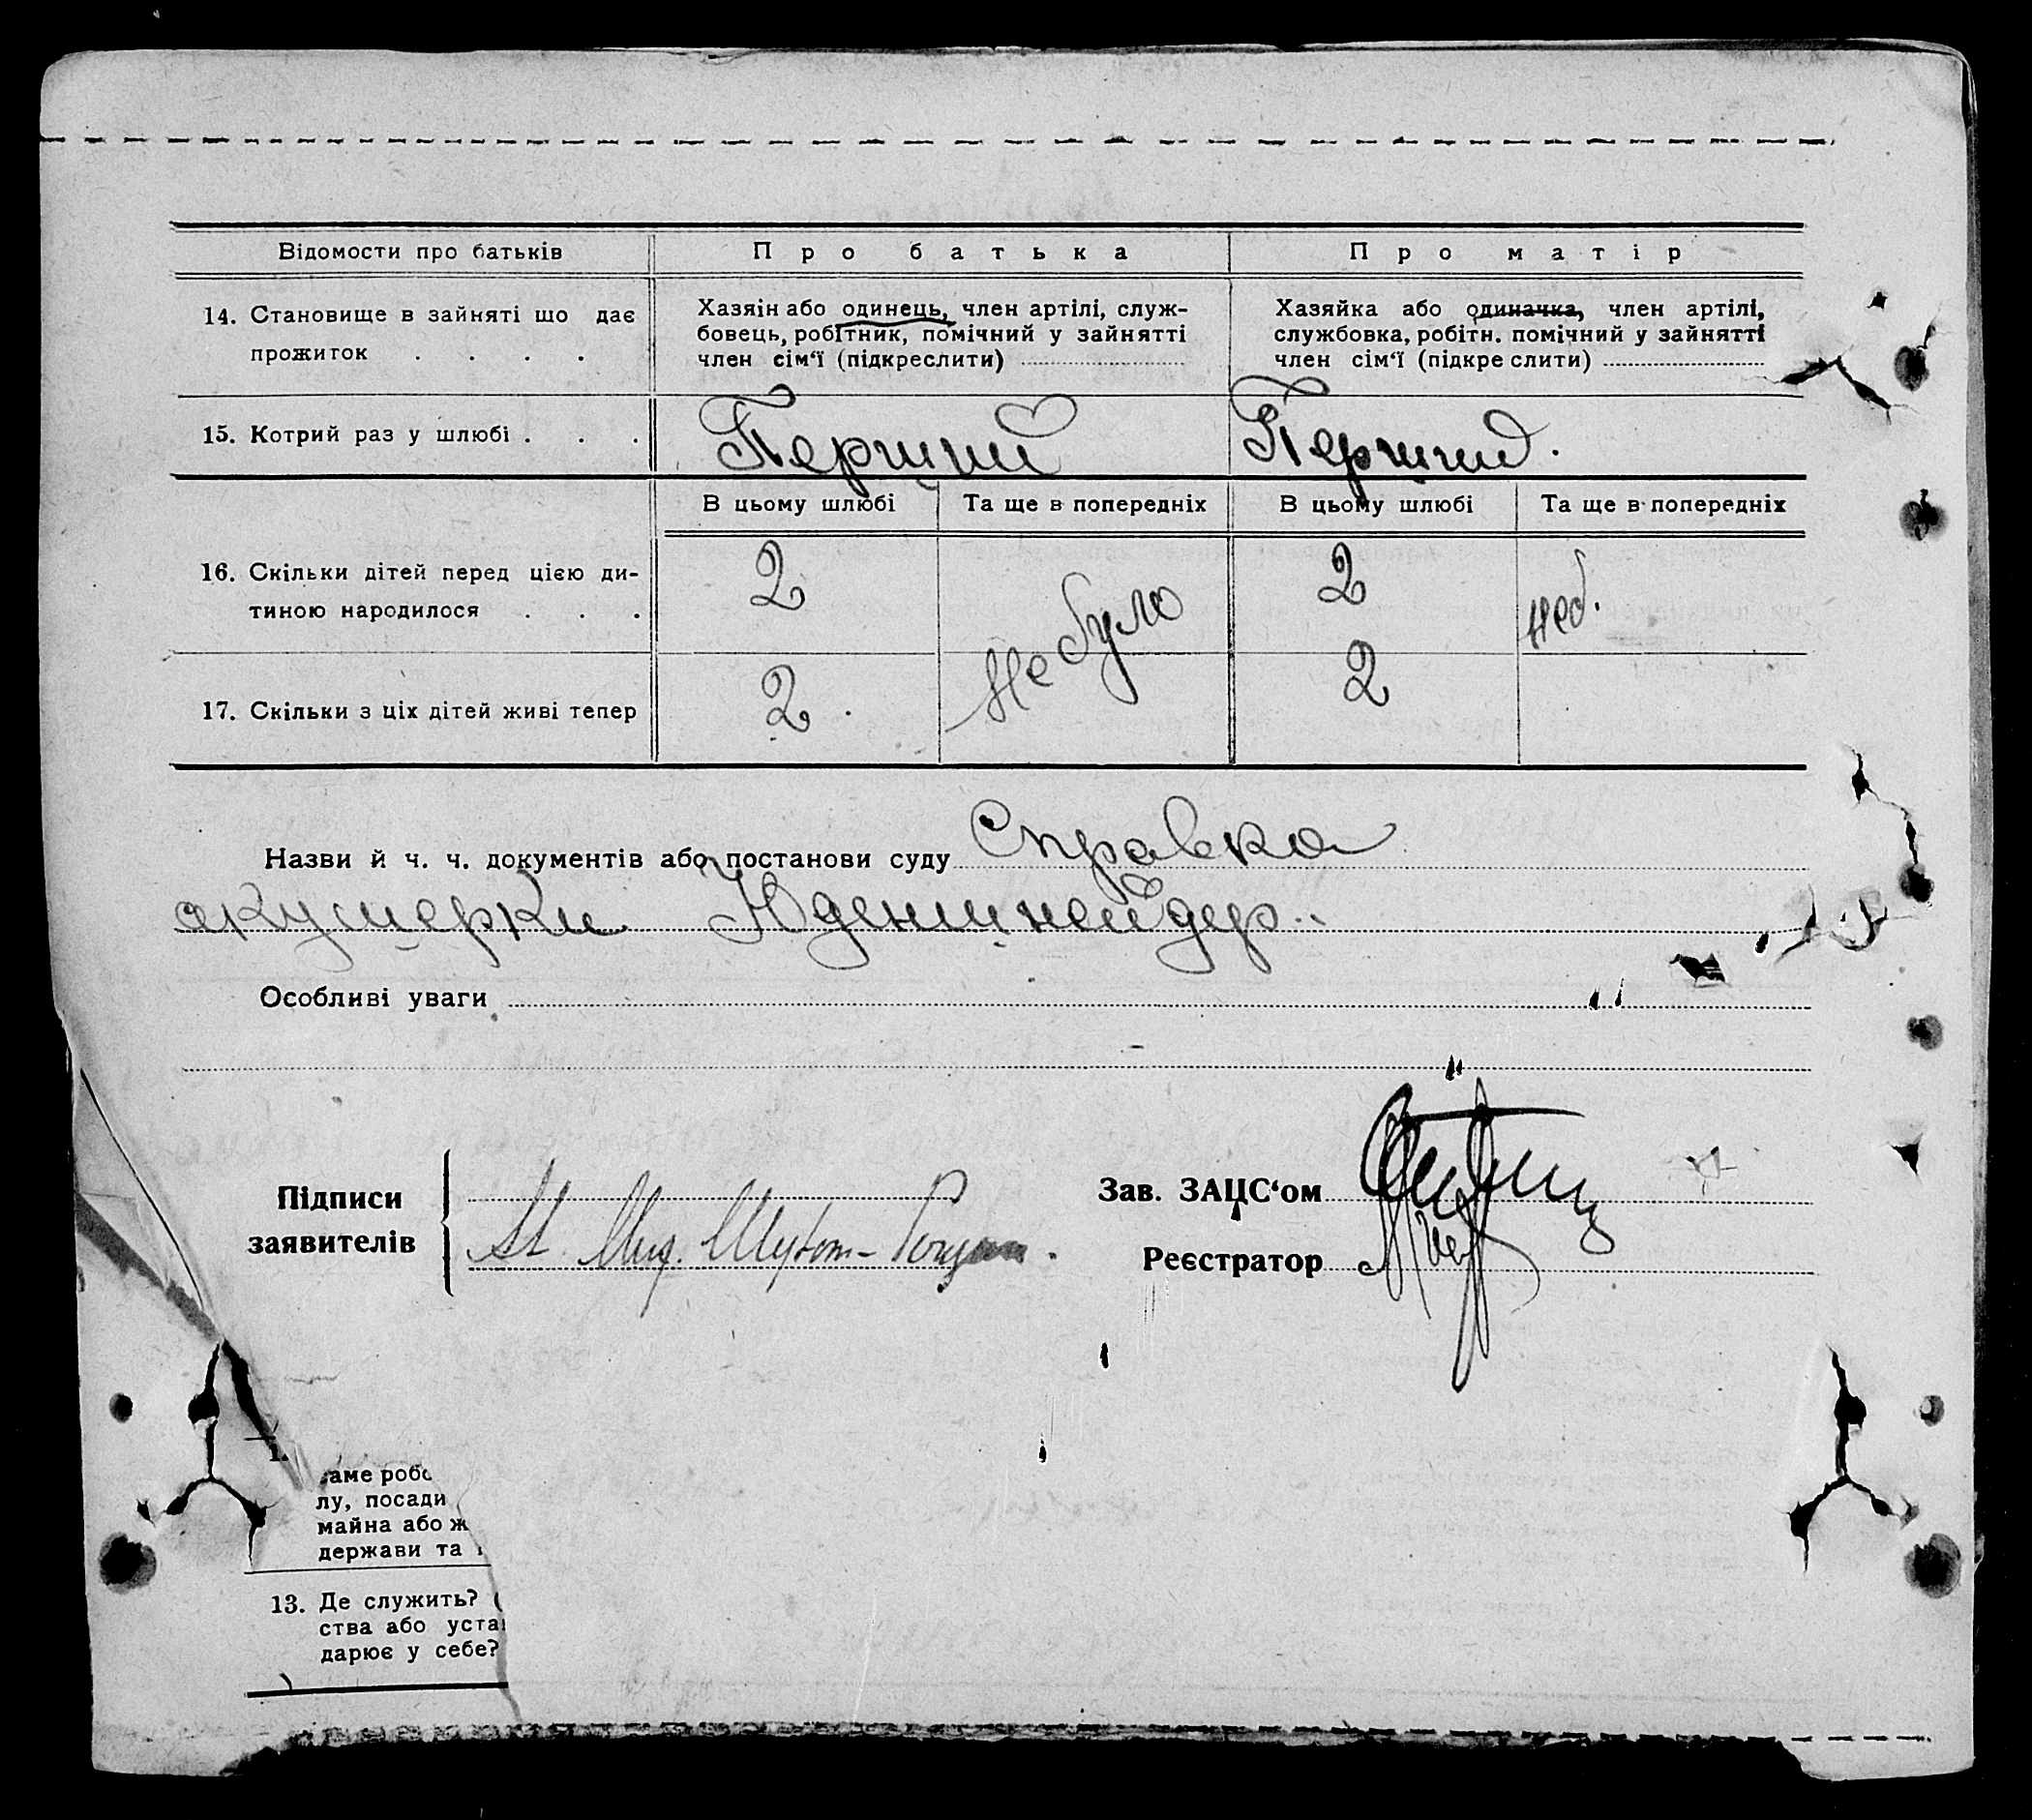 Відомости про батьків
Про батька
Про матір
14. Становище в зайняті що дає
прожиток . . . .
Хазяін або одинець, член артілі, служ-
бовець, робітник, помічний у зайнятті
член сім‘ї (підкреслити)
Хазяйка або одиначка, член артілі,
службовка, робітн. помічний у зайнятті
член сім‘ї (підкре слити)
15. Котрий раз у шлюбі . . .
Перший
Перший.
В цьому шлюбі
Та ще в попередніх
В цьому шлюбі
Та ще в попередніх
16. Скільки дітей перед цією ди-
тиною народилося . . .
2
Не було
2
Не б.
17. Скільки з ціх дітей живі тепер
2.
2
Назви й ч. ч. документів або постанови суду Справка
акушерки
Особливі уваги
Підписи
заявителів
Зав. ЗАЦС‘ом
Реєстратор
1.
аме робо
лу, посади
майна або ж
держави та
13. Де служить? (
ства або устан
дарює у себе?